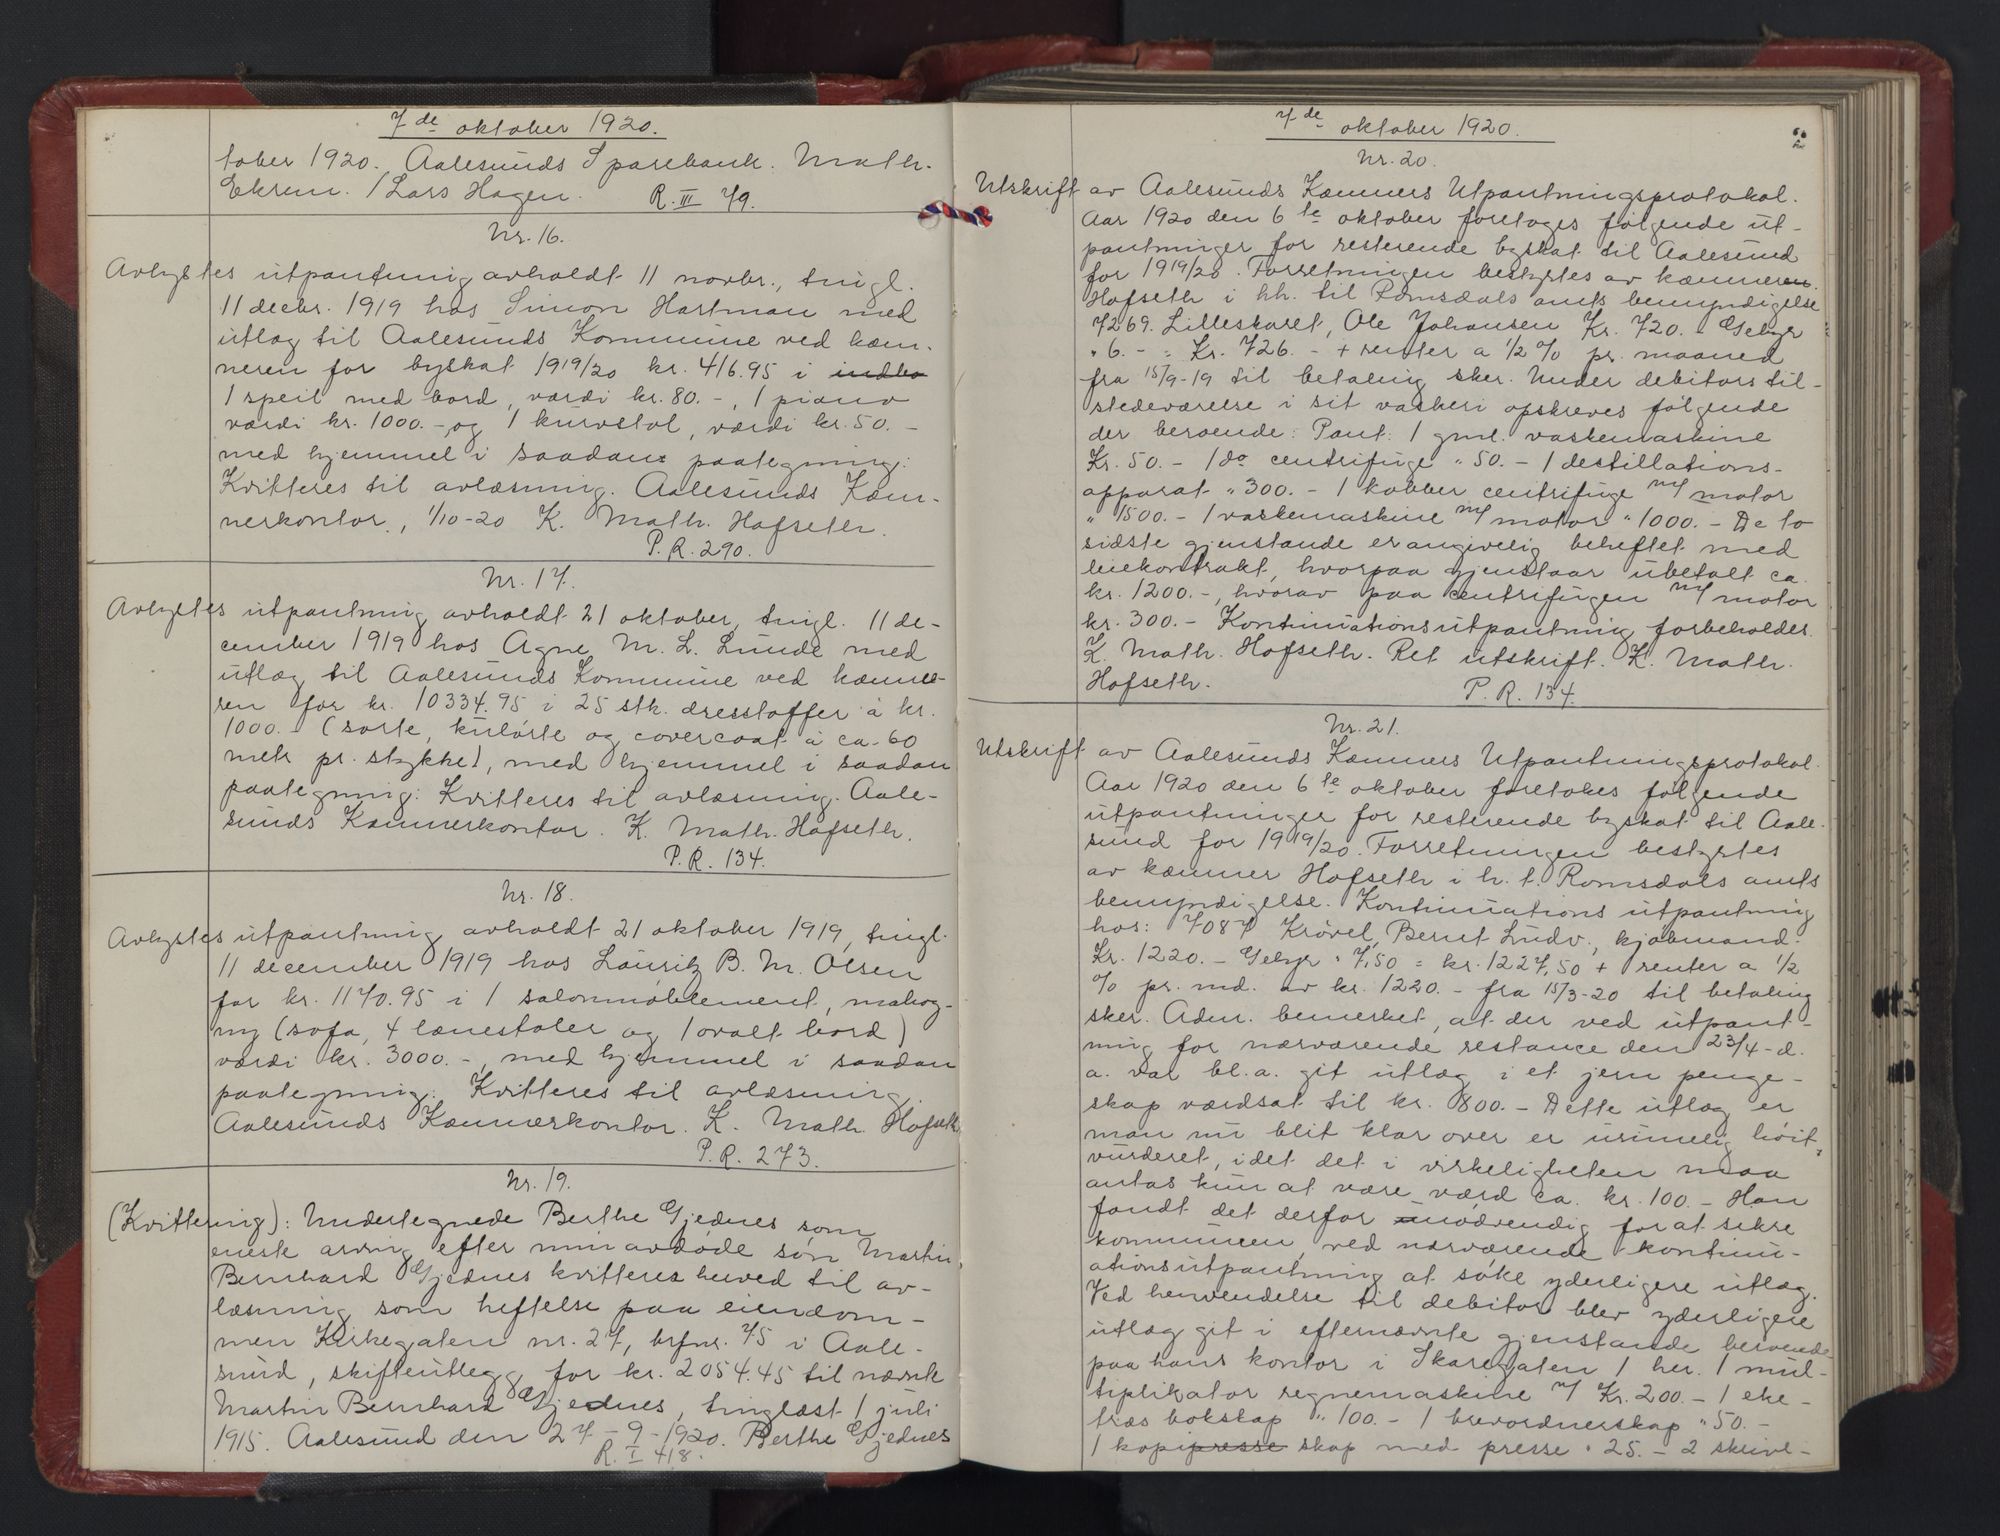 7de oktober 1920.
tober 1920. Aalesunds Sparebank. Math.
Ekrem. / Lars Hagen. R. III 79.
Nr. 16.
Avlyses utpantning avholdt 11 novbr., tingl.
11 decbr. 1919 hos Simon Hartman med
utlæg til Aalesunds Kommune ved kæm-
neren for byskat 1919/20 kr. 416.95 i indbo
1 speil med bord, værdi kr. 80.-, 1 piano
værdi kr. 1000.- og 1 kurvstol, værdi kr. 50.-
med hjemmel i saadan paategning:
Kvitteres til avlæsning. Aalesunds Kæm-
nerkontor, 1/10-20 K. Math. Hofseth.
P. R. 290.
Nr. 17.
Avlyses utpantning avholdt 21 oktober, tingl. 11 de-
cember 1919 hos Agne M. L. Lunde med
utlæg til Aalesunds Kommune ved kæmne-
ren for kr. 10334.95 i 25 stk. dresstoffer à kr.
1000.- (sorte, kulørte og covercoat à ca. 60
metr pr. stykke), med hjemmel i saadan
paategning: Kvitteres til avlæsning. Aale-
sunds Kæmnerkontor. K. Math. Hofseth.
P. R. 134.
Nr. 18.
Avlyses utpantning avholdt 21 oktober 1919, tingl.
11 december 1919 hos Lauritz B. M. Olsen
for kr. 1170.95 i 1 salonmøblement, mahog-
ny (sofa, 4 lænestoler og 1 ovalt bord)
værdi kr. 3000.-, med hjemmel i saadan
paategning: Kvitteres til avlæsning.
Aalesunds Kæmnerkontor. K. Math. Hofseth
P. R. 273.
Nr. 19.
(Kvittering): Undertegnede Berthe Gjednes som
eneste arving efter min avdøde søn Martin
Bernhard Gjednes kvitteres herved til av-
læsning som heftelse paa eiendom-
men Kirkegaten nr. 27, brfnr. 75 i Aale-
sund, skifteutlegg for kr. 2054.45 til nævnte
Martin Bernhard Gjednes, tinglæst 1 juli
1915. Aalesund den 27-9-1920. Berthe Gjednes
R. I 418.
7de oktober 1920.
Nr. 20.
Utskrift av Aalesunds Kæmners Utpantningsprotokol.
Aar 1920 den 6te oktober foretages følgende ut-
pantninger for resterende byskat til Aalesund
for 1919/20. Forretningen bestyrtes av kæmneren
Hofseth i hh. til Romsdals amts bemyndigelse
7269. Lilleskaret, Ole Johansen Kr. 720.- Gebyr
" 6.- = Kr. 726.- + renter a 1/2 % pr. maaned
fra 15/9-19 til betaling sker. Under debitors til-
stedeværelse i sit vaskeri opskreves følgende
der beroende: Pant: 1 gml. vaskemaskine
Kr. 50.- 1 do centrifuge " 50.- 1 destillations-
apparat " 300.- 1 kobber centrifuge m/ motor
" 1500.- 1 vaskemaskine m/ motor " 1000.- De to
sidste gjenstande er angivelig beheftet med
leiekontrakt, hvorpaa gjenstaar ubetalt ca.
kr. 1200.-, hvorav paa centrifugen m/ motor
kr. 300.- Kontinuationsutpantning forbeholdes.
K. Math. Hofseth. Ret utskrift. K. Math.
Hofseth. P. R. 134.
Nr. 21.
Utskrift av Aalesunds Kæmners Utpantningsprotokol.
Aar 1920 den 6te oktober foretokes følgende
utpantninger for resterende byskat til Aale-
sund for 1919/20. Forretningen bestyrtes
av kæmner Hofseth i h. t. Romsdals amts
bemyndigelse. Kontinuations utpantning
hos: 7087 Krøvel, Bernt Ludv., kjøbmand.
Kr. 1220.- Gebyr " 7,50 = kr. 1227,50 + renter a 1/2
% pr. md. av kr. 1220.- fra 15/3-20 til betaling
sker. Adm. bemerket, at der ved utpant-
ning for nærværende restance den 23/4-d.
a. var bl. a. git utlæg i et jern penge-
skap værdsat til kr. 800.- Dette utlæg er
man nu blit klar over er urimelig høit
vurderet, idet det i virkeligheten maa
antas kun at være værd ca. kr. 100.- Han
fandt det derfor nødvendig for at sikre
kommunen ved nærværende kontinu-
ationsutpantning at søke yderligere utlæg.
Ved henvendelse til debitor blev yderligere
utlæg git i efternævnte gjenstande beroende
paa hans kontor i Skaregaten 1 her. 1 mul-
tiplikator regnemaskine v/ Kr. 200.- 1 eke-
træs bokskap " 100.- 1 brevordnerskap " 50.-
1 kopipresse skap med presse " 25.- 2 skrive-